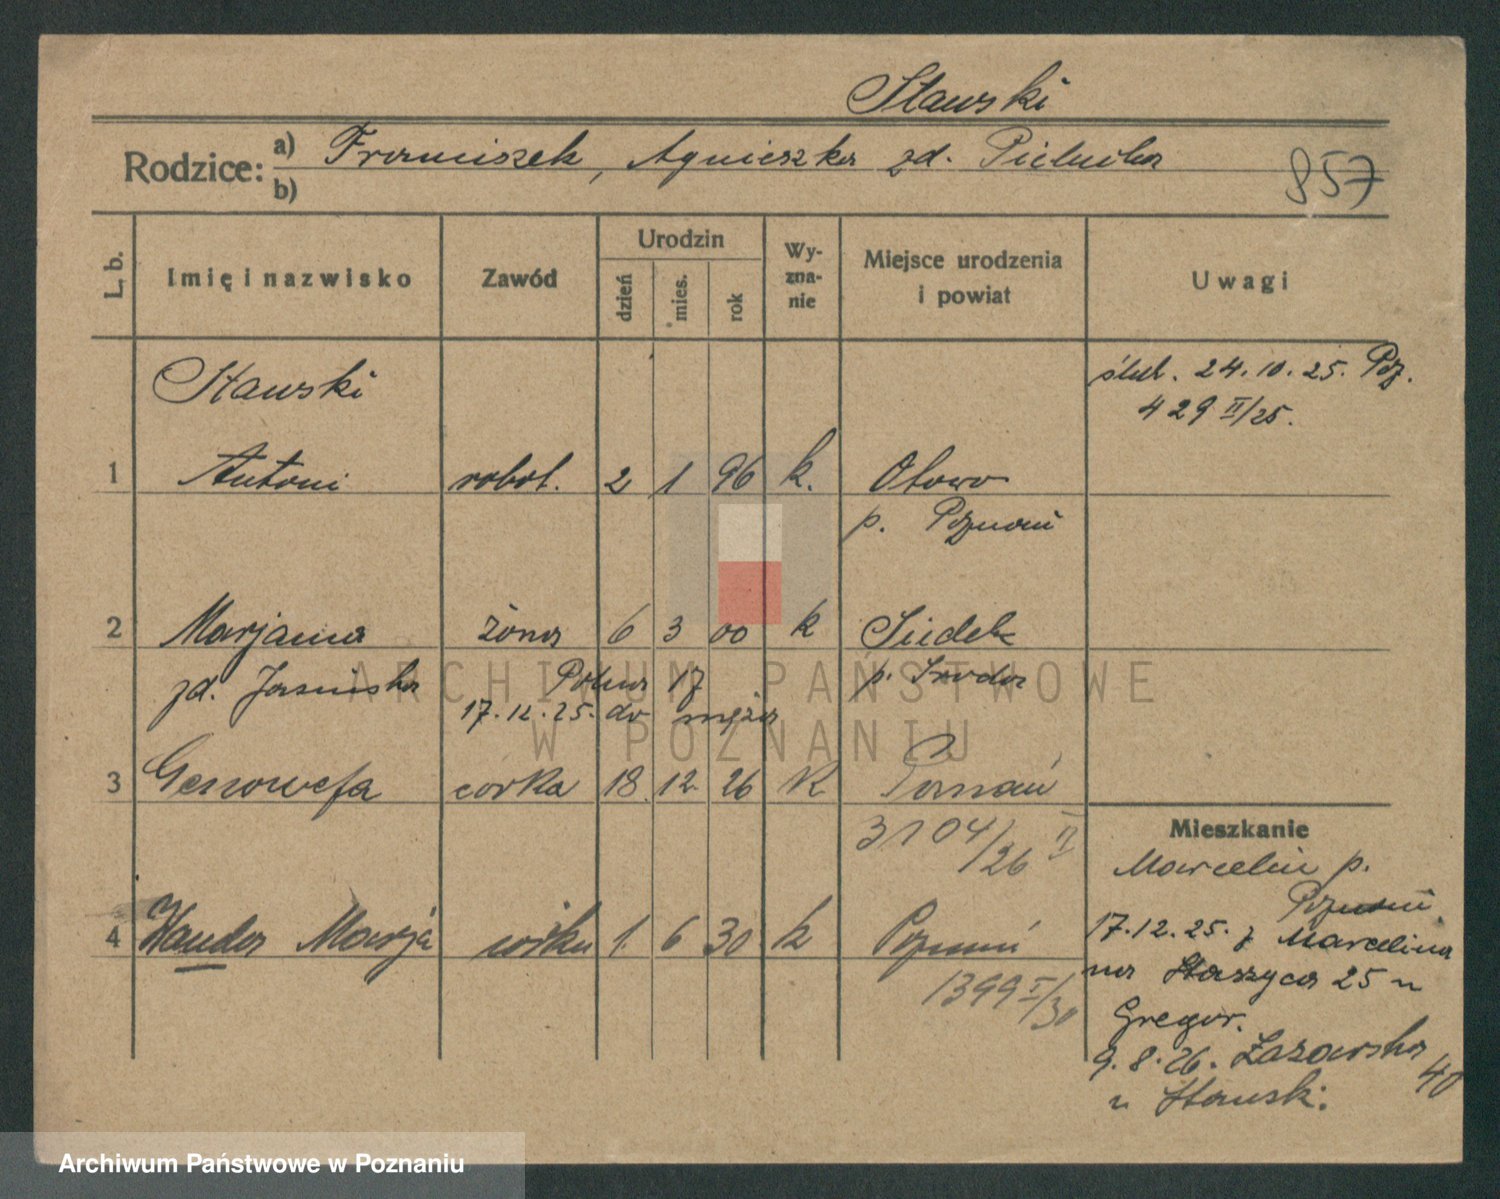 Stawski
Rodzice: a) Franciszek, Agnieszka zd. Pielucha
b)
857
L. b.
Imię i nazwisko
Zawód
Urodzin
dzień
mies.
rok
Wy-
zna-
nie
Miejsce urodzenia
i powiat
Uwagi
Stawski
ślub. 24.10.25. Poz.
429 II/25.
1 Antoni robot. 2 1 96 k. Otowo
p. Poznań
2 Marjanna żona 6 3 00 k Siedlec
zd. Jasińska Polna 17 p. Środa
17.12.25. do męża
3 Genowefa córka 18. 12. 26 k Poznań
3104/26 II
4 Wanda Marja córka 1. 6 30 k Poznań
1399 I/30
Mieszkanie
Marcelin p.
Poznań
17.12.25. z Marcelina
na Staszyca 25 u
Gregor.
9.8.26. Łazarska 40
u Stawski.
ARCHIWUM PAŃSTWOWE
W POZNANIU
Archiwum Państwowe w Poznaniu